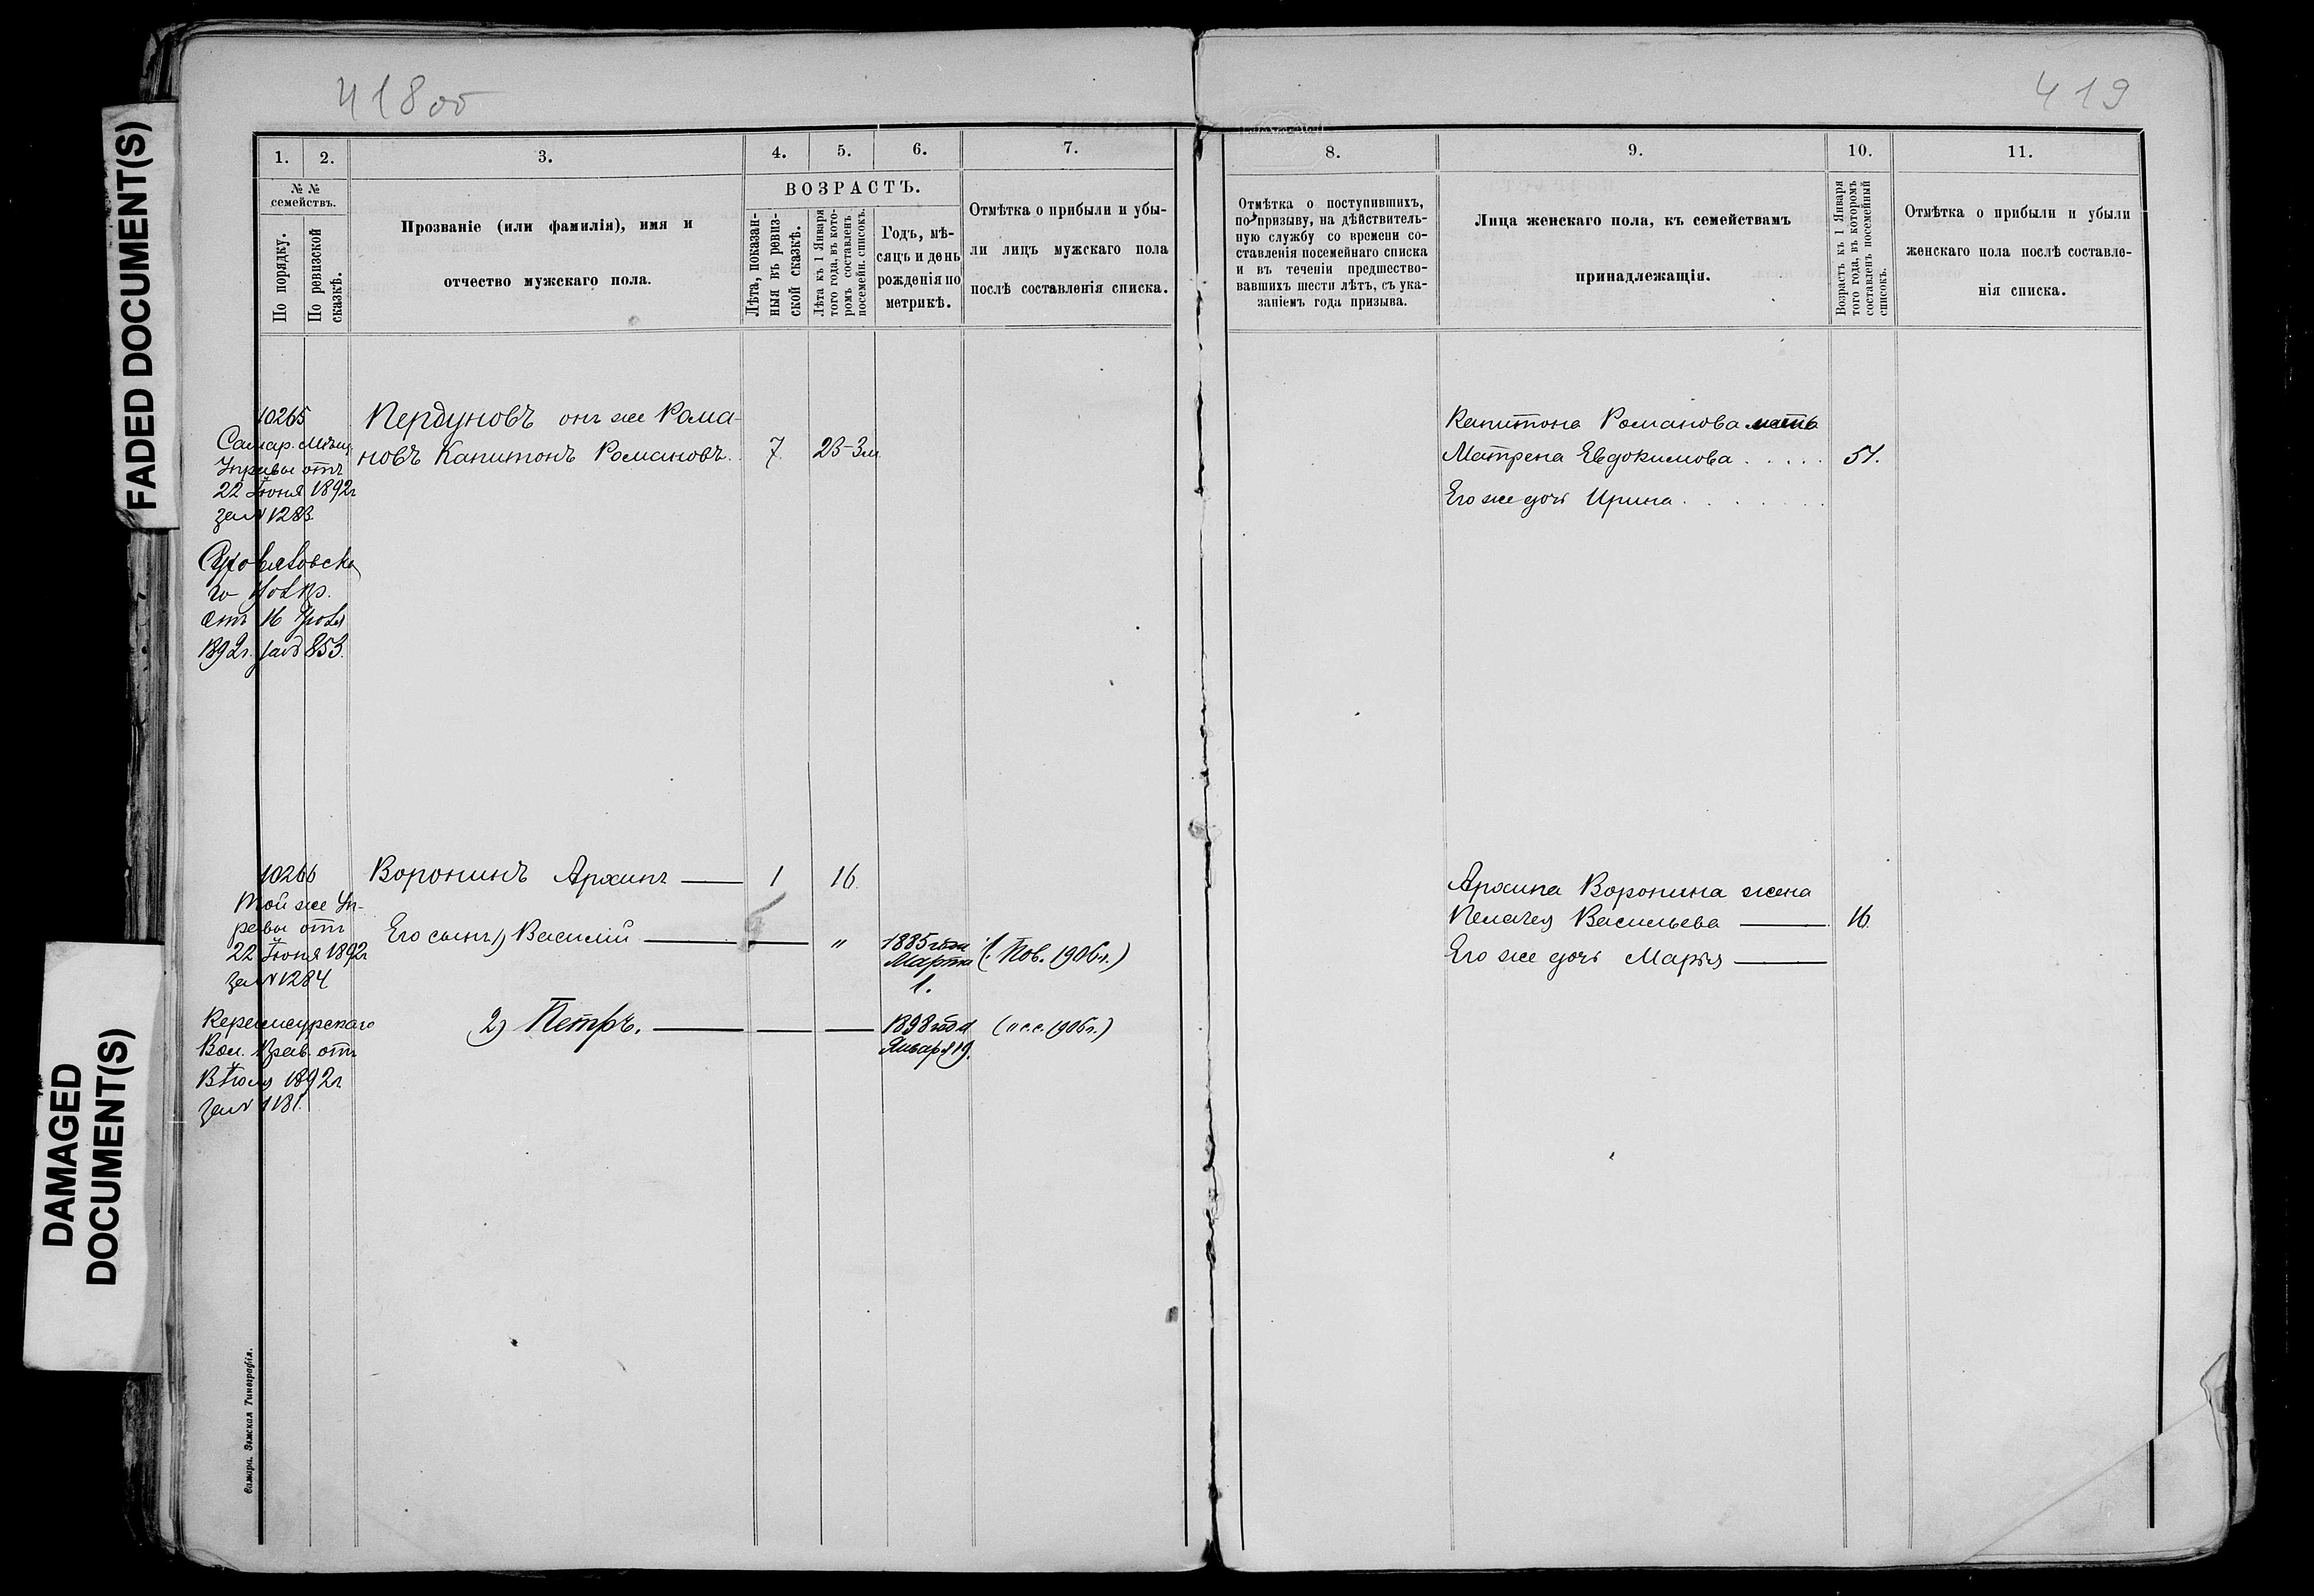 418 об
419
FADED DOCUMENT(S)
DAMAGED
DOCUMENT(S)
1.
2.
3.
4.
5.
6.
7.
№ №
семействъ.
По порядку.
По ревизской
сказкѣ.
Прозваніе (или фамилія), имя и
отчество мужскаго пола.
ВОЗРАСТЪ.
Лѣта, показан-
ныя въ ревиз-
ской сказкѣ.
Лѣта къ 1 Января
того года, въ кото-
ромъ составленъ
посемейн. списокъ.
Годъ, мѣ-
сяцъ и день
рожденія по
метрикѣ.
Отмѣтка о прибыли и убы-
ли лицъ мужскаго пола
послѣ составленія списка.
10265
Самар. Мѣщ.
Управы отъ
22 Іюня 1892г
за № 1283
отъ 16 Іюля
1892г. за № 853.
Пердуновъ онъ же Рома-
новъ Капитонъ Романовъ.
7
23-3м
10266
Той же Уп-
равы отъ
22 Іюня 1892г
за № 1284
Вол. Прав. отъ
Іюля 1892г
за № 1181.
Воронинъ Архипъ
1
16
Его сынъ 1) Василій
"
1885 года
Марта
1.
(1. Пов. 1906г.)
2) Петръ.
1898 года
Января 19.
(п с.с. 1906г.)
Самара. Земская Типографія.
8.
9.
10.
11.
Отмѣтка о поступившихъ,
по призыву, на дѣйствитель-
ную службу со времени со-
ставленія посемейнаго списка
и въ теченіи предшество-
вавшихъ шести лѣтъ, съ ука-
заніемъ года призыва.
Лица женскаго пола, къ семействамъ
принадлежащія.
Возрастъ къ 1 Января
того года, въ которомъ
составленъ посемейный
списокъ.
Отмѣтка о прибыли и убыли
женскаго пола послѣ составле-
нія списка.
Капитона Романова мать
Матрена Евдокимова . . . . .
51.
Его же дочь Ирина . . . . . .
Архипа Воронина жена
Пелагея Васильева
16.
Его же дочь Марья